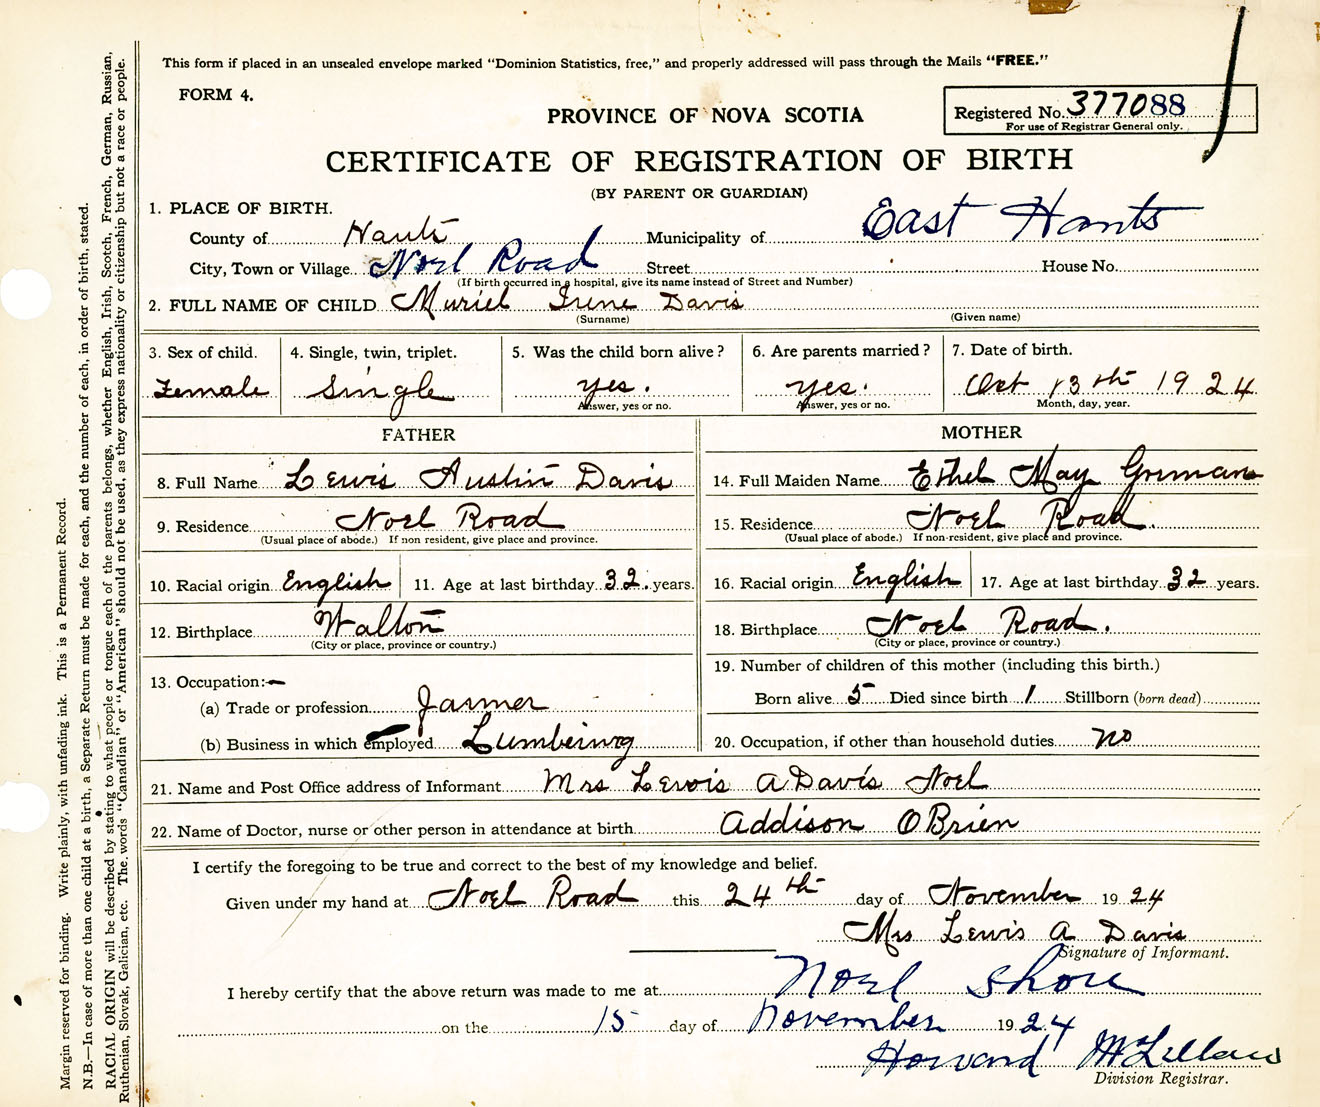 This form if placed in an unsealed envelope marked "Dominion Statistics, free," and properly addressed will pass through the Mails "FREE."
FORM 4.
PROVINCE OF NOVA SCOTIA
Registered No. 377088
For use of Registrar General only.
CERTIFICATE OF REGISTRATION OF BIRTH
(BY PARENT OR GUARDIAN)
1. PLACE OF BIRTH.
County of Hants Municipality of East Hants
City, Town or Village Noel Road Street House No.
(If birth occurred in a hospital, give its name instead of Street and Number)
2. FULL NAME OF CHILD Muriel Irene Davis
(Surname) (Given name)
3. Sex of child. 4. Single, twin, triplet. 5. Was the child born alive? 6. Are parents married? 7. Date of birth.
Female Single yes. yes. Oct 13th 1924
Answer, yes or no. Answer, yes or no. Month, day, year.
FATHER MOTHER
8. Full Name Lewis Austin Davis 14. Full Maiden Name Ethel May
9. Residence Noel Road 15. Residence Noel Road.
(Usual place of abode.) If non resident, give place and province. (Usual place of abode.) If non-resident, give place and province.
10. Racial origin English 11. Age at last birthday 32. years. 16. Racial origin English 17. Age at last birthday 32 years.
12. Birthplace Walton 18. Birthplace Noel Road.
(City or place, province or country.) (City or place, province or country.)
13. Occupation:— 19. Number of children of this mother (including this birth.)
(a) Trade or profession Farmer Born alive 5 Died since birth 1 Stillborn (born dead)
(b) Business in which employed Lumbering 20. Occupation, if other than household duties no
21. Name and Post Office address of Informant Mrs Lewis A Davis Noel
22. Name of Doctor, nurse or other person in attendance at birth Addison OBrien
I certify the foregoing to be true and correct to the best of my knowledge and belief.
Given under my hand at Noel Road this 24th day of November 1924
Mrs Lewis A Davis
Signature of Informant.
I hereby certify that the above return was made to me at Noel Shore
on the 15 day of November 1924
Howard McLellan
Division Registrar.
Margin reserved for binding. Write plainly, with unfading ink. This is a Permanent Record.
N.B.—In case of more than one child at a birth, a Separate Return must be made for each, and the number of each, in order of birth, stated.
RACIAL ORIGIN will be described by stating to what people or tongue each of the parents belongs, whether English, Irish, Scotch, French, German, Russian,
Ruthenian, Slovak, Galician, etc. The words "Canadian" or "American" should not be used, as they express nationality or citizenship but not a race or people.